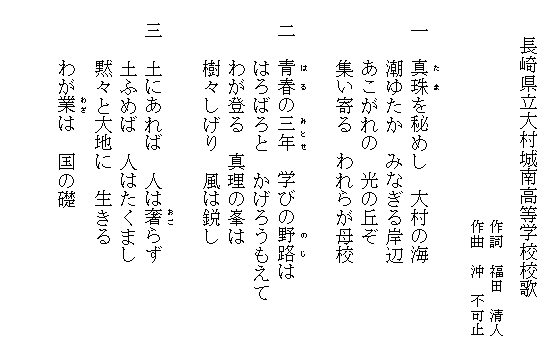 長崎県立大村城南高等学校校歌
作詞　福田　清人
作曲　沖　不可止
一　真珠を秘めし　大村の海
潮ゆたか　みなぎる岸辺
あこがれの　光の丘ぞ
集い寄る　われらが母校
二　青春の三年　学びの野路は
はろばろと　かげろうもえて
わが登る　真理の峯は
樹々しげり　風は鋭し
三　土にあれば　人は奢らず
土ふめば　人はたくまし
黙々と大地に　生きる
わが業は　国の礎